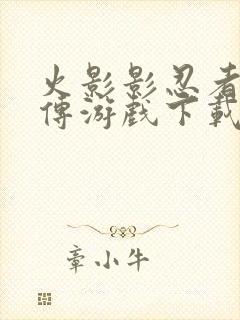 火影影忍者
傳游戲下載
章小牛